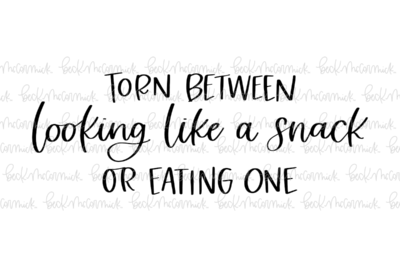 TORN BETWEEN
looking like a snack
OR EATING ONE